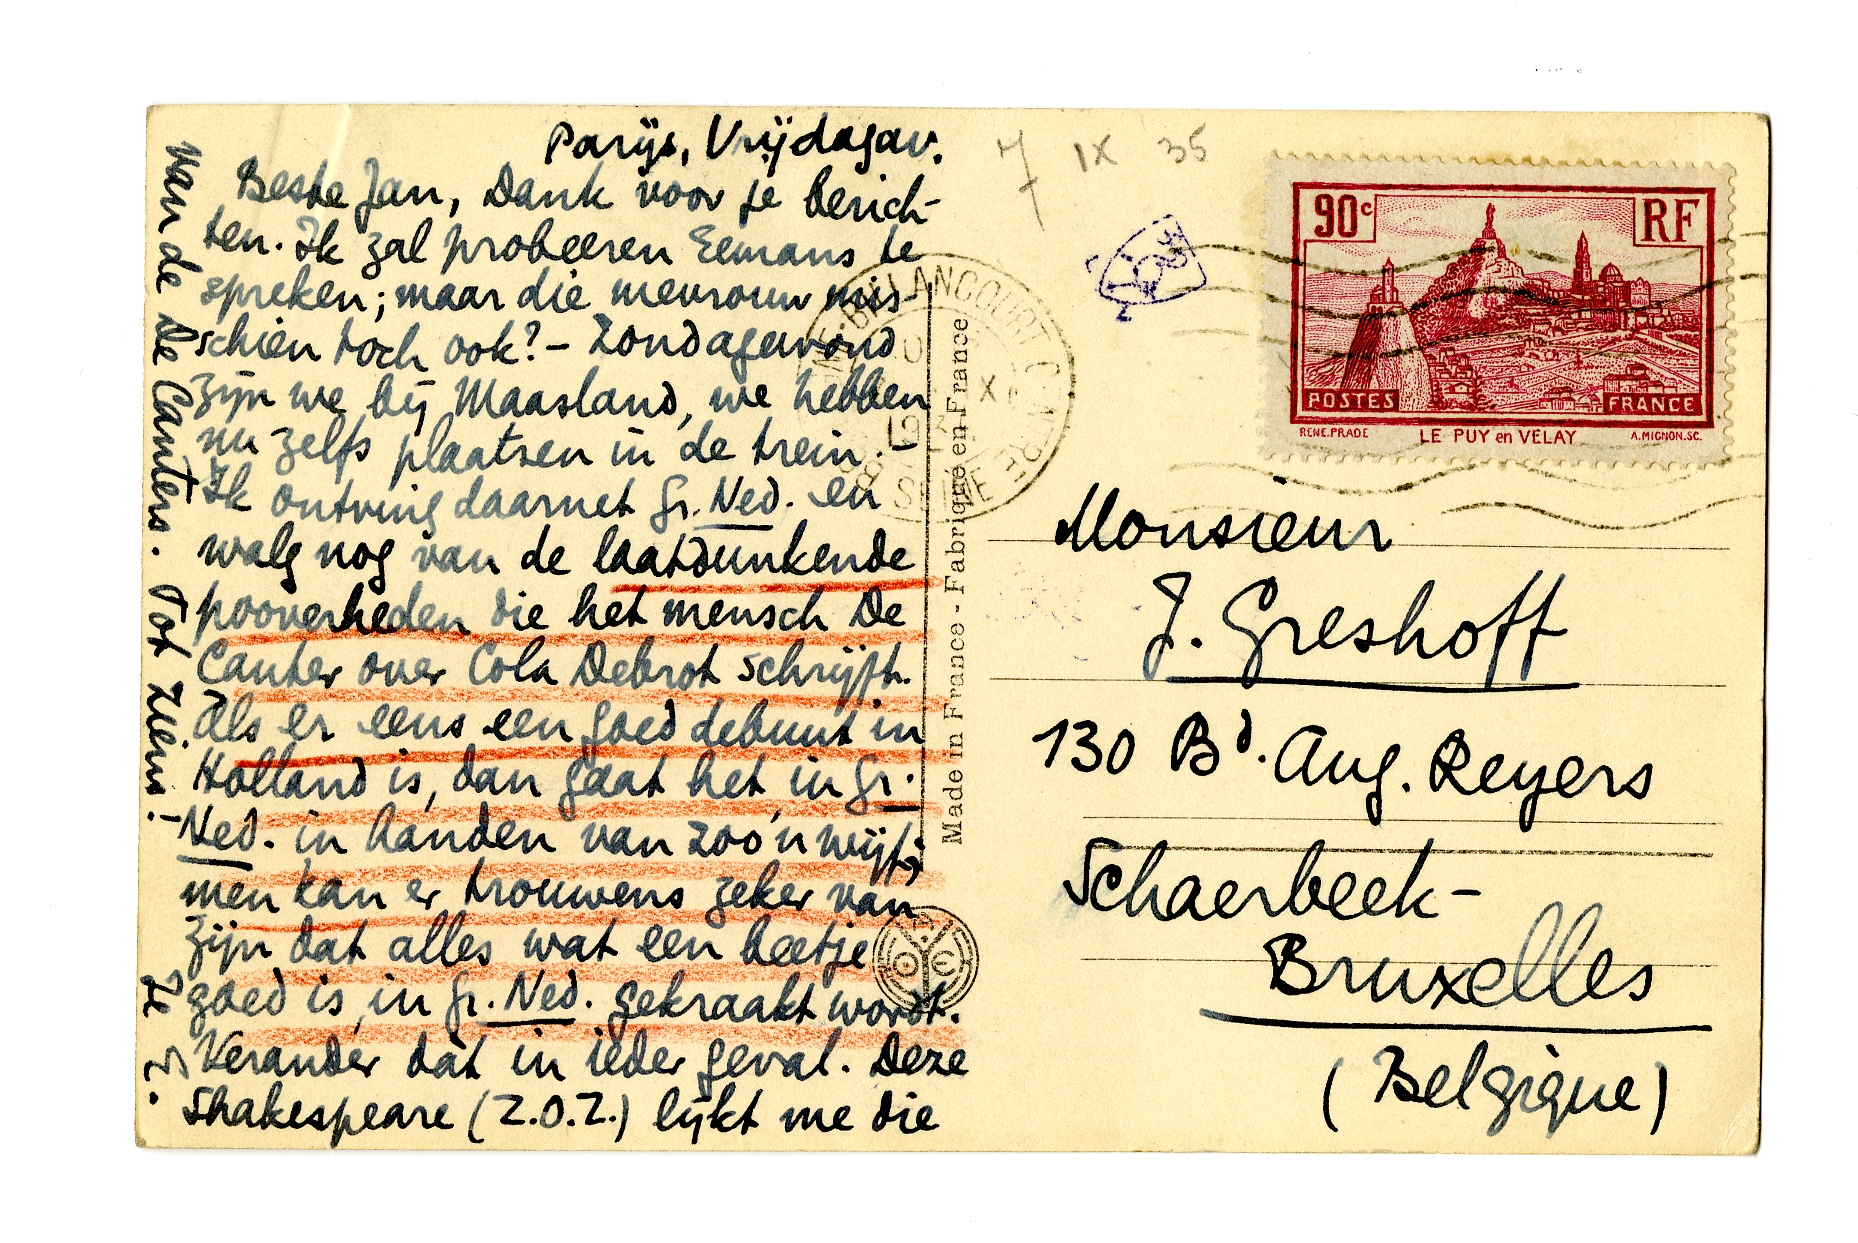 Parijs, Vrijdagav.
Beste Jan, Dank voor je berich-
ten. Ik zal probeeren Eemans te
spreken; maar die mevrouw mis-
schien toch ook? – Zondagavond
zijn we bij Maasland, we hebben
nu zelfs plaatsen in de trein. –
Ik ontving daarnet Gr. Ned. en
walg nog van de laatdunkende
pooverheden die het mensch De
Canter over Cola Debrot schrijft.
Als er eens een goed debuut in
Holland is, dan gaat het in Gr.
Ned. in handen van zoo'n wijf;
men kan er trouwens zeker van
zijn dat alles wat een beetje
goed is, in Gr. Ned. gekraakt wordt.
Verander dàt in ieder geval. Deze
Shakespeare (Z.O.Z.) lijkt me die
van de De Canters. Tot ziens! –
7 IX 35
BILLANCOURT CENTRE
SEINE
Made in France - Fabriqué en France
90c
RF
POSTES
FRANCE
RENE.PRADE
LE PUY en VELAY
A.MIGNON.SC.
Monsieur
J. Greshoff
130 Bd. Aug. Reyers
Schaerbeek-
Bruxelles
(Belgique)